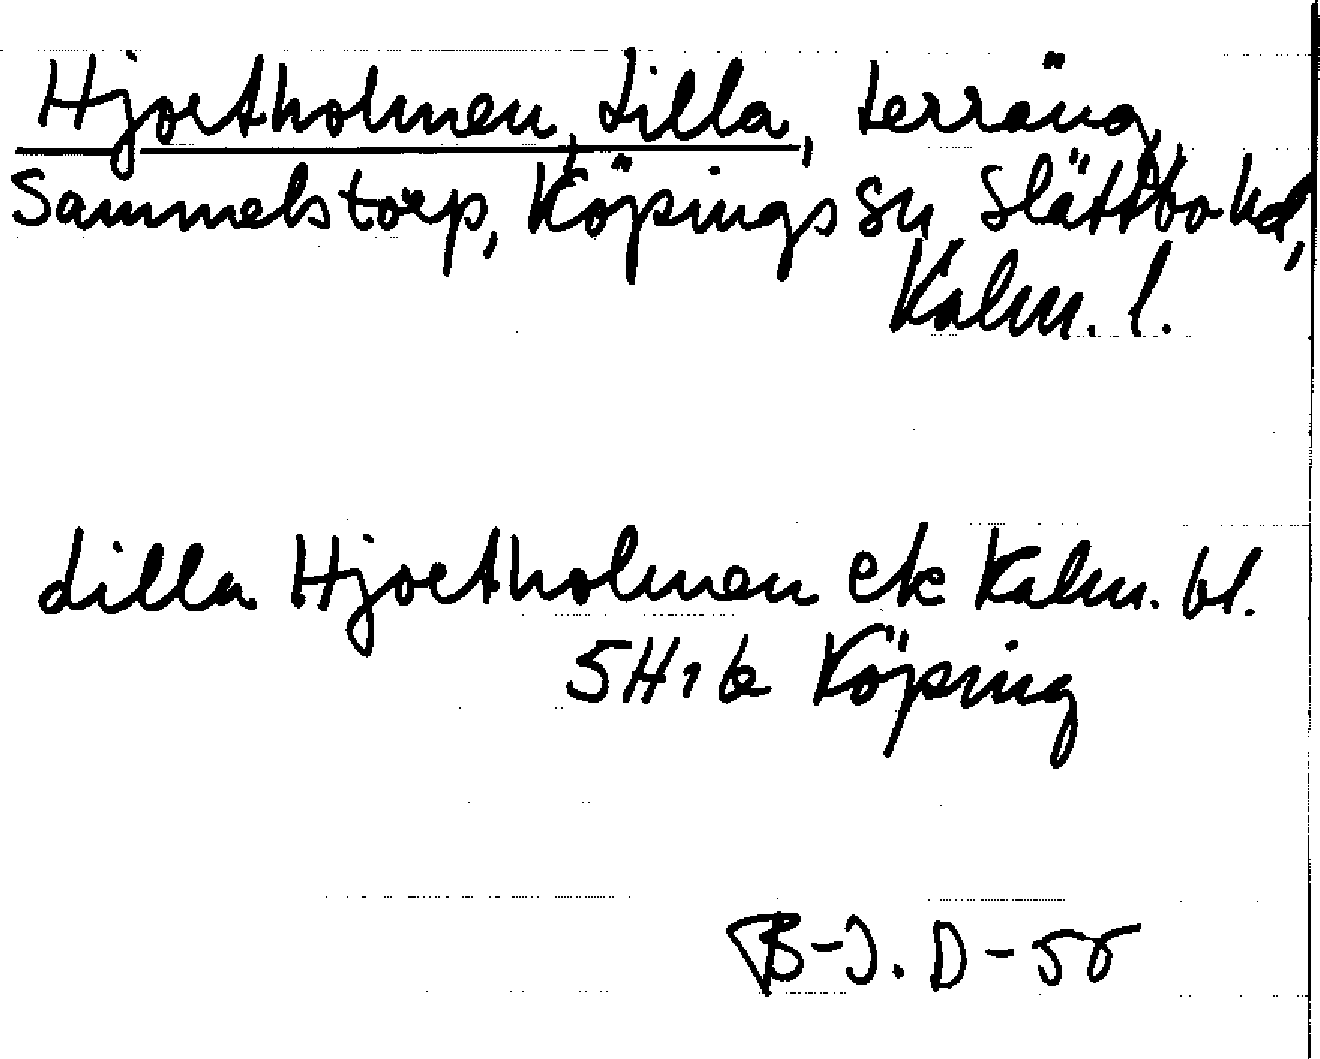 Hjortholmen, Lilla, terräng,
Sammelstorp, Köpings sn Slättbo hd,
Kalm. l.
Lilla Hjortholmen ek Kalm. bl.
5H1b Köping
B-J. D-55